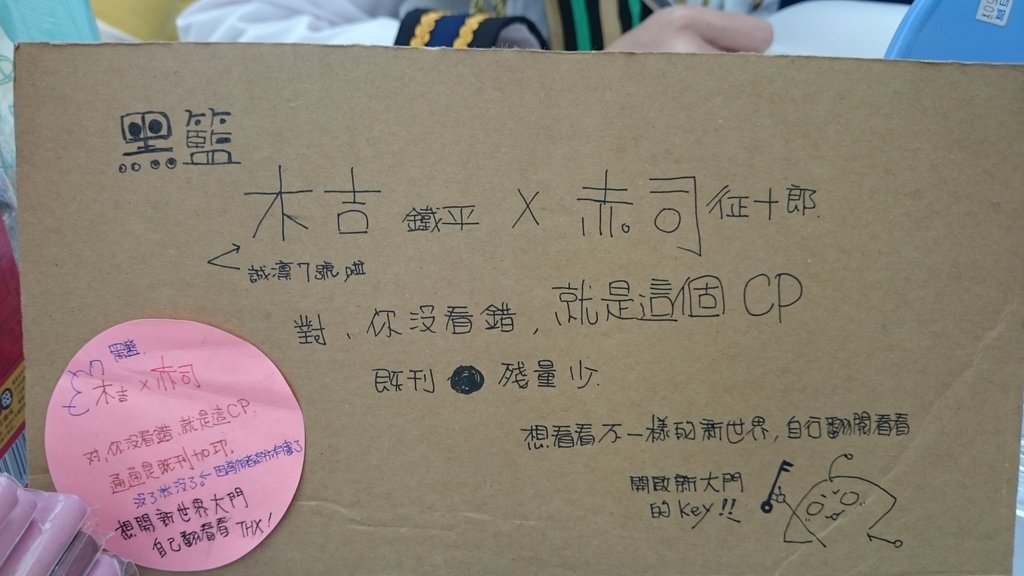 黑籃
木吉 鐵平 X 赤司 征十郎
誠凛7號啦
對、你沒看錯,就是這個CP
既刊 殘量少
想看看不一樣的新世界,自行翻開看看
開啟新大門
的key!!
黑籃
木吉×赤司
对,你没看錯,就是這CP.
通通是既刊
没了就没了
想開新世界大門
自己翻看看 THX!